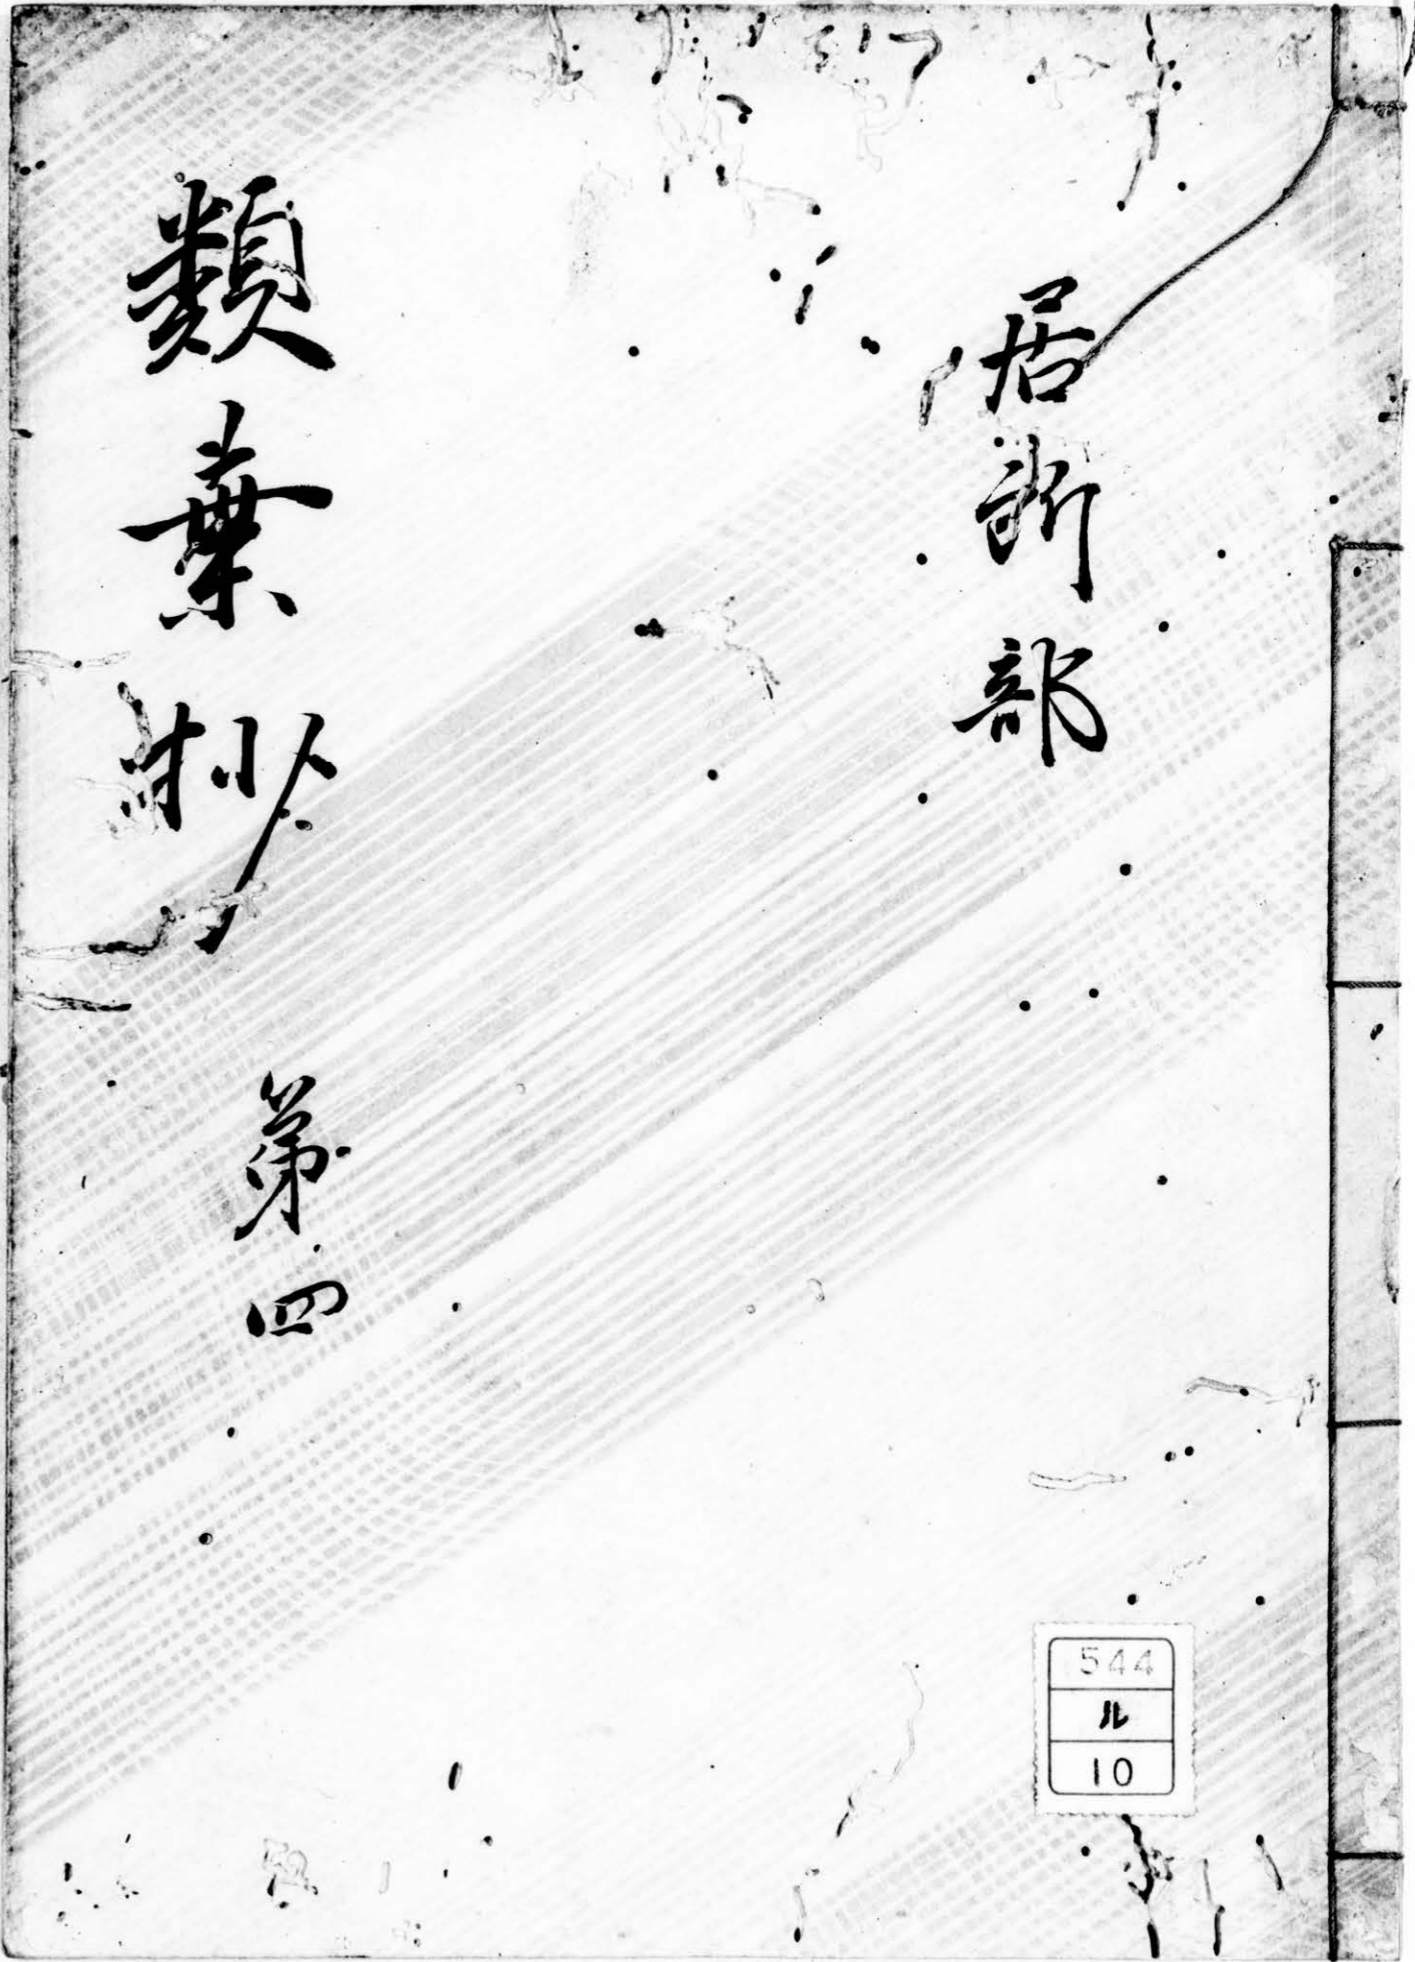 居所部
類葉抄 第四
544
ル
10